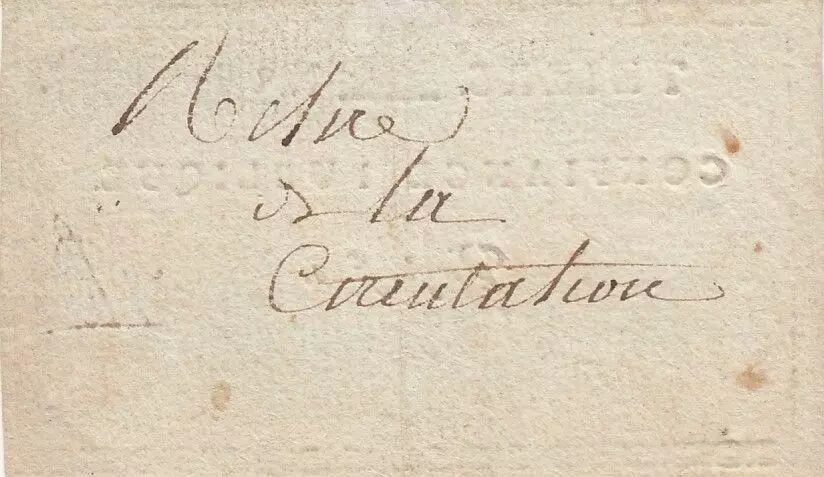 Retiré
de la
Circulation